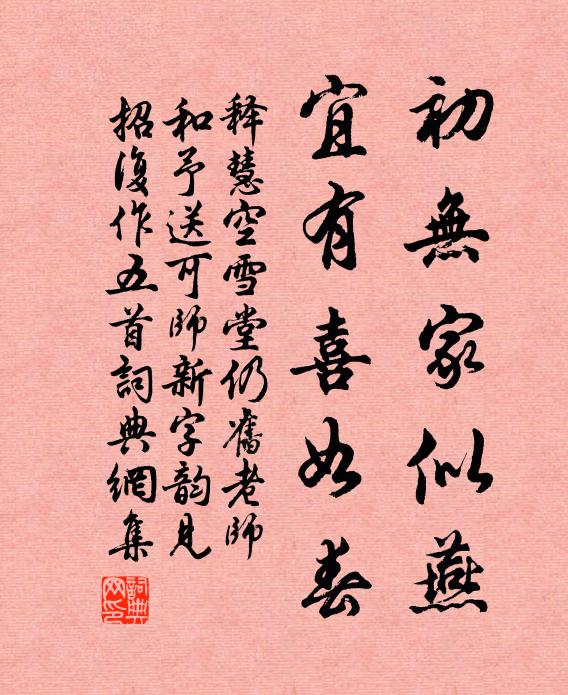 初無家似燕
宜有喜如春
释慧空雪堂仍舊老師
和予送可師新字韵見
招復作五首詞典網集
詞典网印